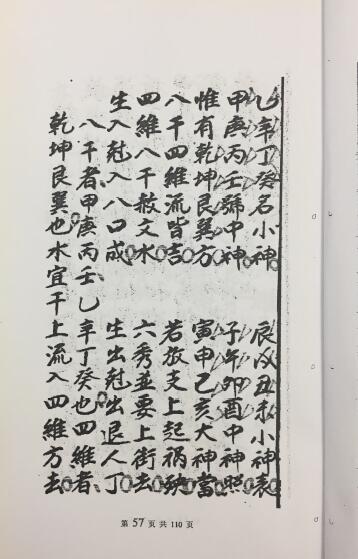 乙辛丁癸名小神 辰戌丑未小神表
甲庚丙壬號中神 子午卯酉中神照
惟有乾坤艮巽方 寅申乙亥大神當
八干四維流皆吉 若放支上起禍殃
四維八干赦文水 六秀並要上街去
生入尅入八口成 生出尅出退人丁
八干者甲庚丙壬乙辛丁癸也四維者
乾坤艮巽也水宜干上流入四維方去
第 57 页 共 110 页